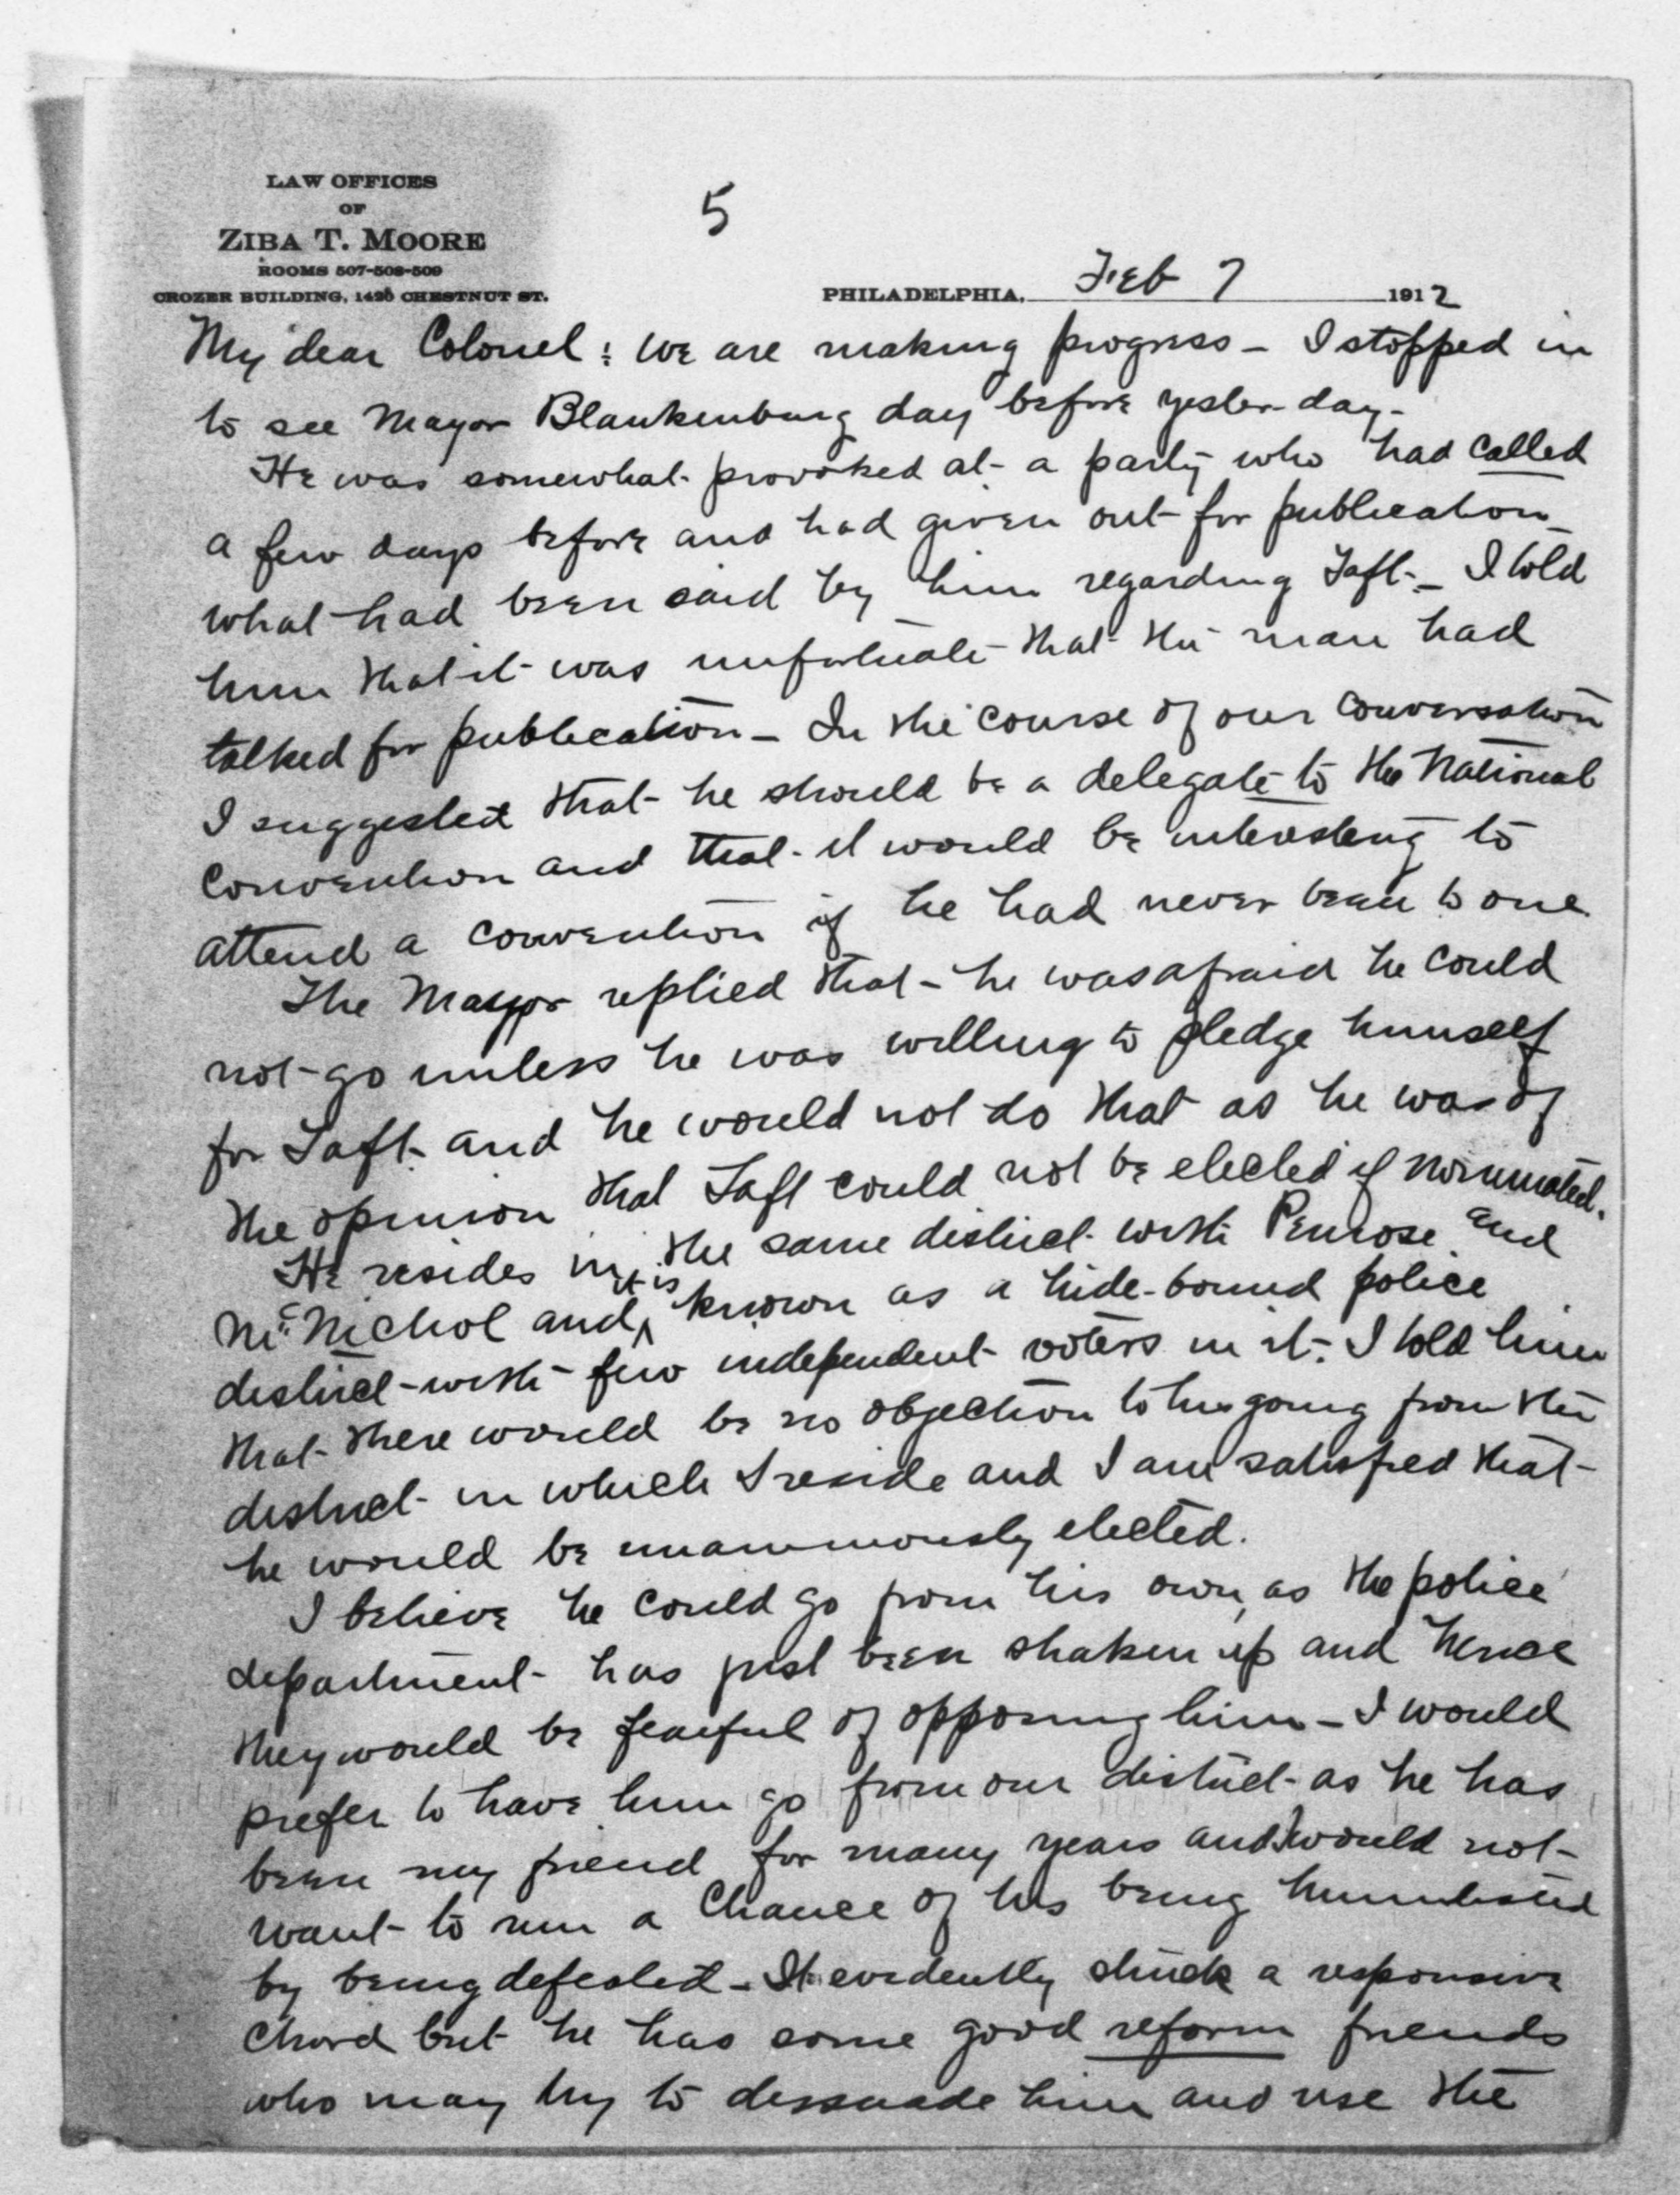 LAW OFFICES
OF
ZIBA T. MOORE
ROOMS 507-508-509
CROZER BUILDING, 1420 CHESTNUT ST.
5
PHILADELPHIA, Feb 7 1912
My dear Colonel: We are making progress – I stopped in
to see Mayor Blankenburg day before yesterday.
He was somewhat provoked at a party who had called
a few days before and had given out for publication
what had been said by him regarding Taft – I told
him that it was unfortunate that the man had
talked for publication – In the course of our conversation
I suggested that he should be a delegate to the National
Convention and that it would be interesting to
attend a convention if he had never been to one
The Mayor replied that he was afraid he could
not go unless he was willing to pledge himself
for Taft and he would not do that as he was of
the opinion that Taft could not be elected if nominated.
He resides in the same district with Penrose and
McNichol and it is known as a hide-bound police
district with few independent voters in it. I told him
that there would be no objection to his going from the
district in which I reside and I am satisfied that
he would be unanimously elected.
I believe he could go from his own, as the police
department has just been shaken up and hence
they would be fearful of opposing him – I would
prefer to have him go from our district as he has
been my friend for many years and I would not
want to run a chance of his being humiliated
by being defeated – It evidently struck a responsive
chord but he has some good reform friends
who may try to dessuade him and use the